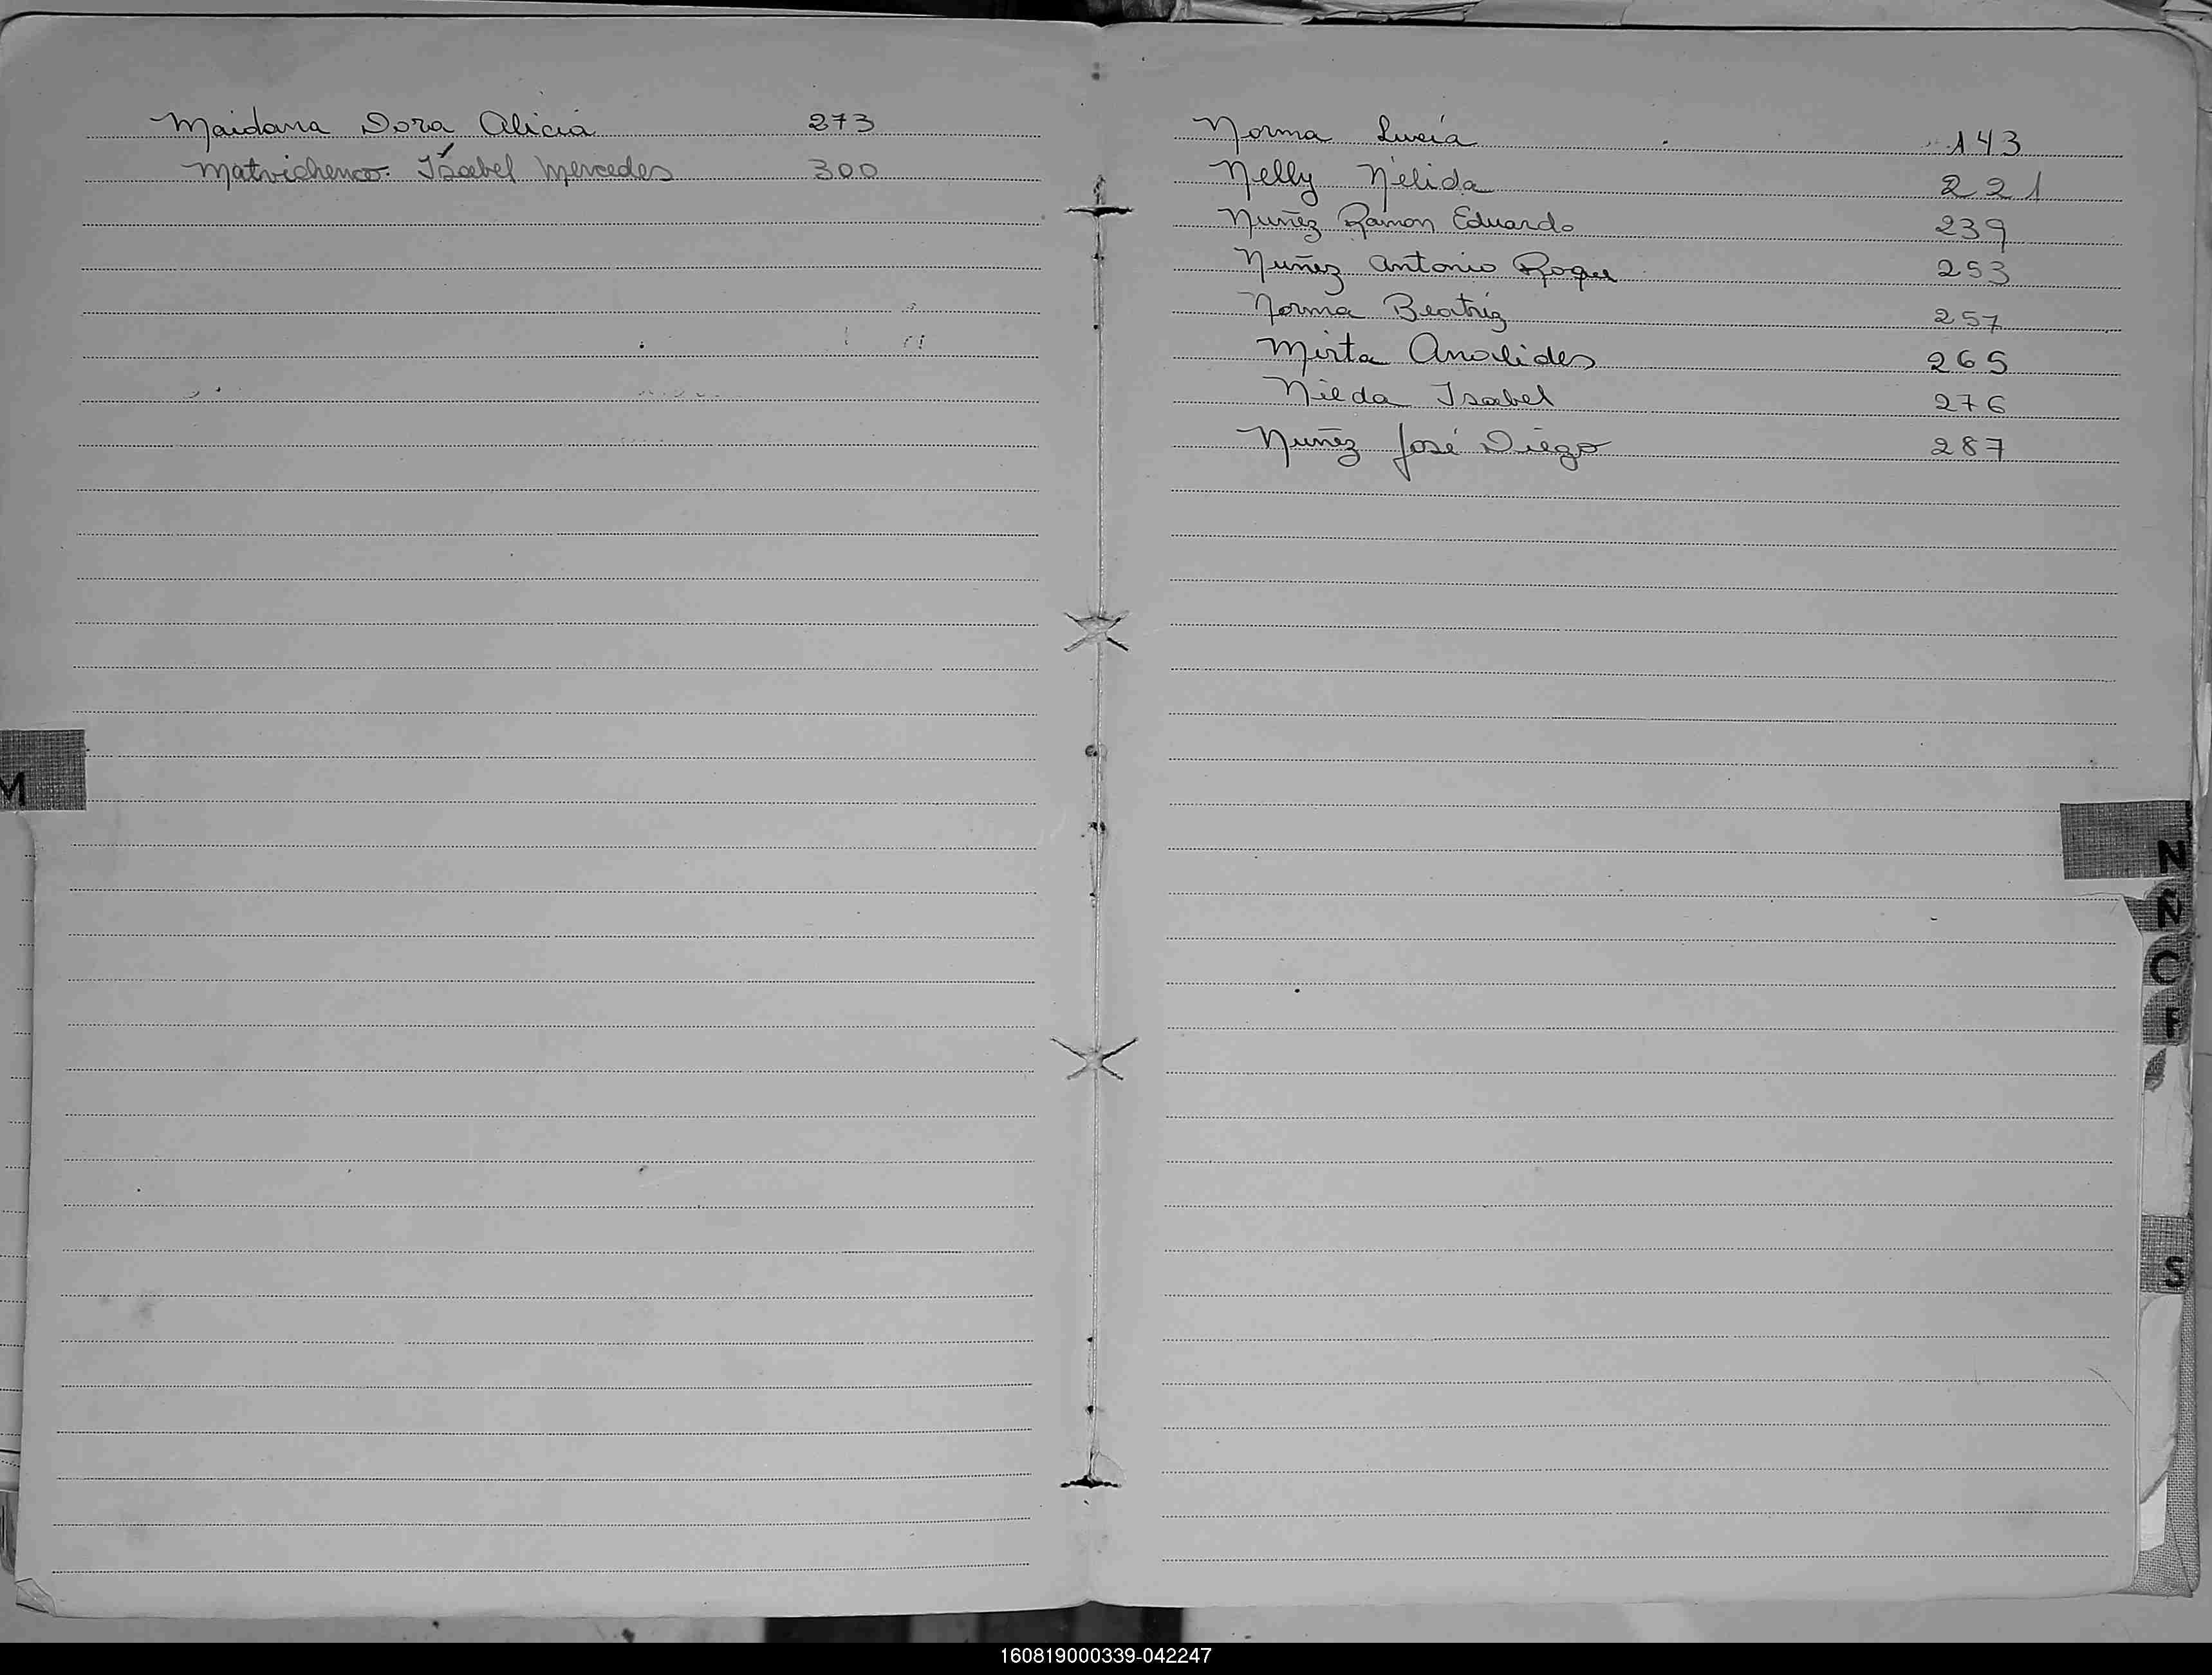 Maidana Dora Alicia 273
Matvichenco. Isabel Mercedes 300
M
Norma Lucía 143
Nelly Nélida 221
Nuñez Ramon Eduardo 239
Nuñez Antonio Roque 253
Norma Beatriz 257
Mirta Analides 265
Nilda Isabel 276
Nuñez José Diego 287
N
Ñ
O
P
S
160819000339-042247